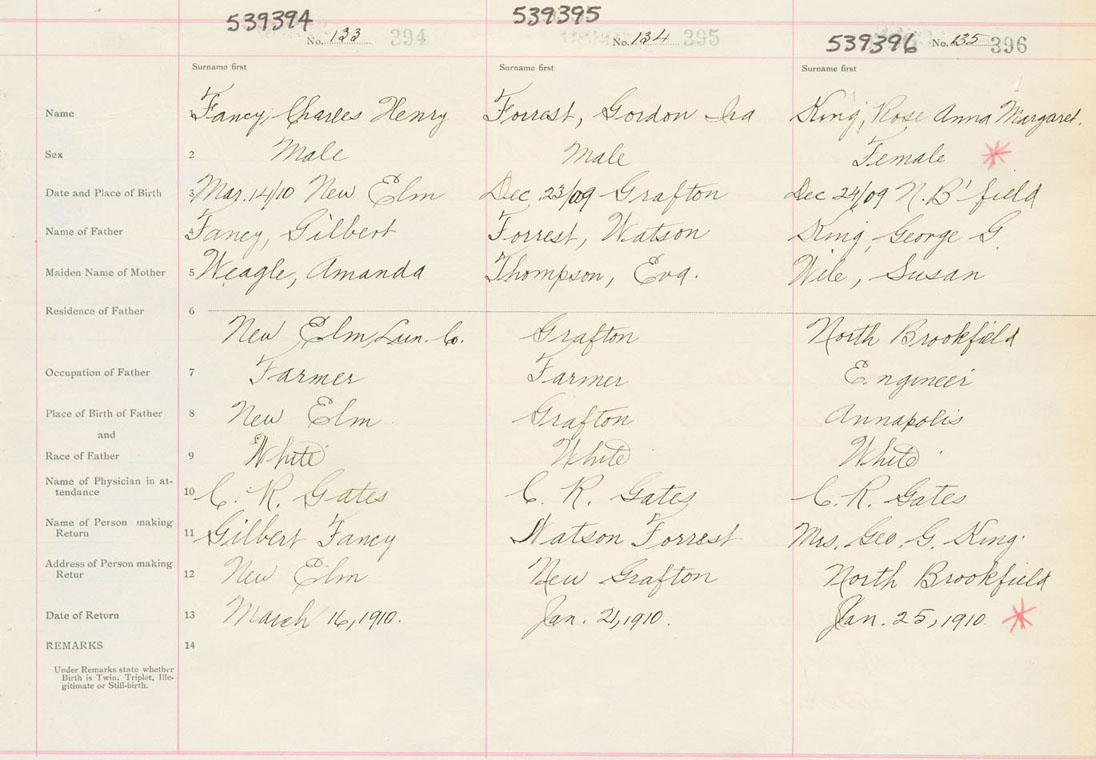 539394 539395
No. 133 394 No. 134 395 539396 No. 135 396
Surname first Surname first Surname first
Name 1 Fancy, Charles Henry Forrest, Gordon Ira King, Rose Anna Margaret.
Sex 2 Male Male Female
Date and Place of Birth 3 Mar. 14/10 New Elm Dec. 23/09 Grafton Dec 24/09 N. B'field
Name of Father 4 Fancy, Gilbert Forrest, Watson King, George G.
Maiden Name of Mother 5 Weagle, Amanda Thompson, Eva. Wile, Susan
Residence of Father 6
New Elm, Lun. Co. Grafton North Brookfield
Occupation of Father 7 Farmer Farmer Engineer
Place of Birth of Father 8 New Elm. Grafton Annapolis
and
Race of Father 9 White White White
Name of Physician in at-
tendance 10 C. R. Gates C. R. Gates C. R. Gates
Name of Person making
Return 11 Gilbert Fancy Watson Forrest Mrs. Geo. G. King.
Address of Person making
Retur 12 New Elm New Grafton North Brookfield
Date of Return 13 March 16, 1910. Jan. 21, 1910. Jan. 25, 1910.
REMARKS 14
Under Remarks state whether
Birth is Twin, Triplet, Ille-
gitimate or Still-birth.